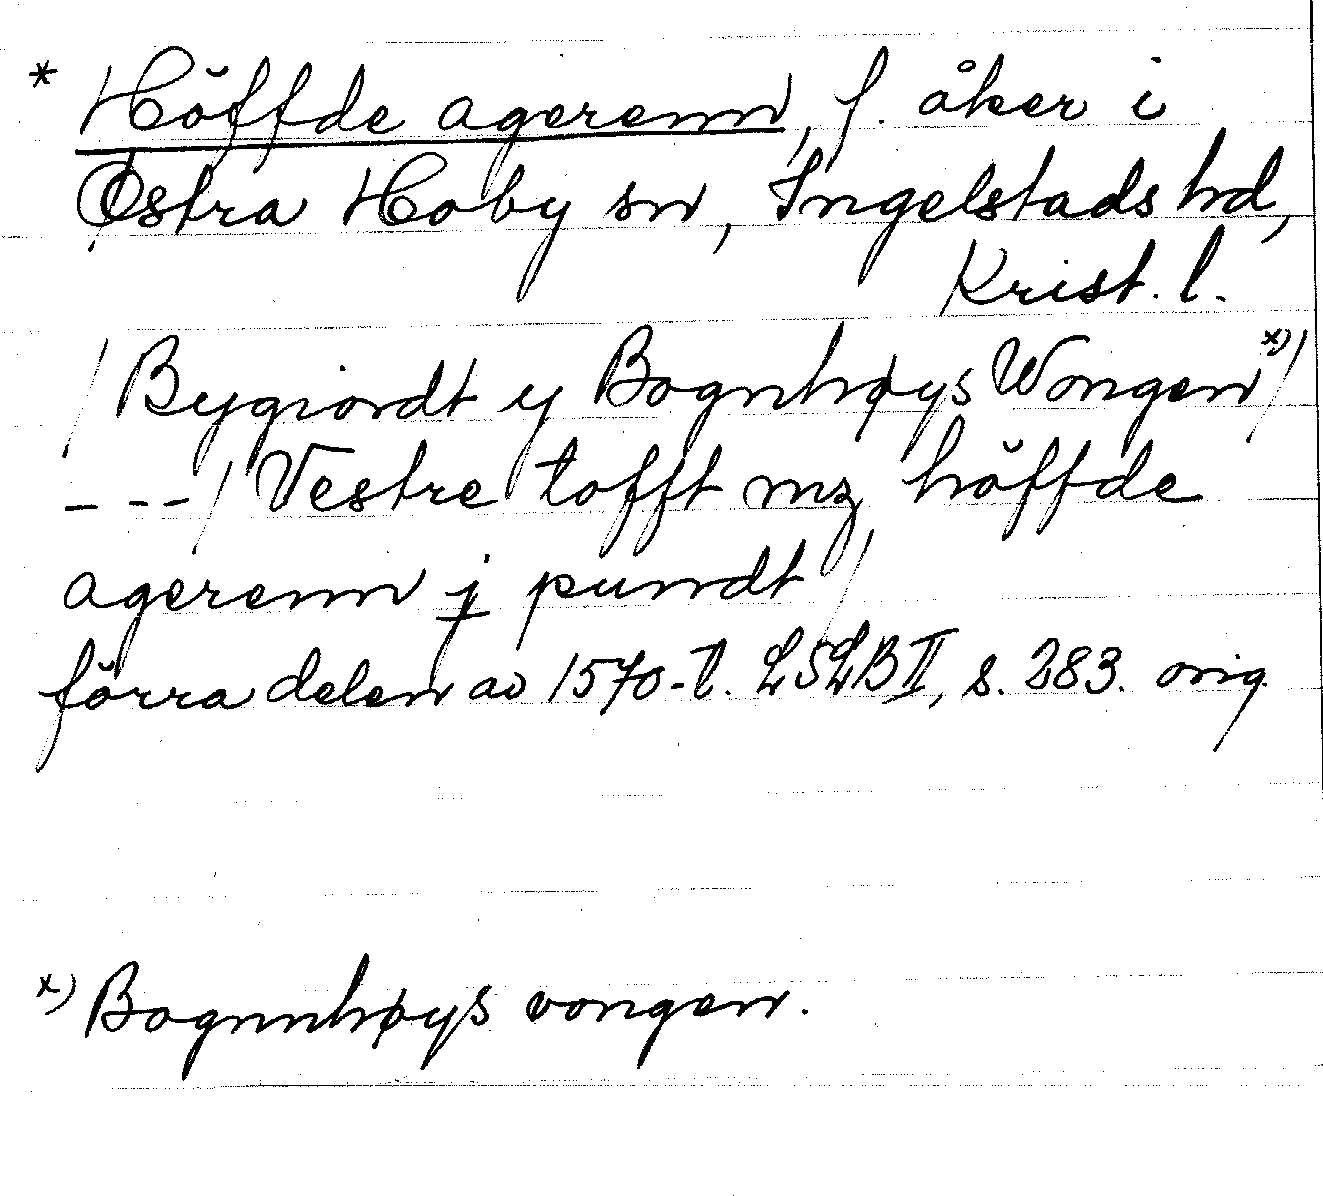 * Höffde agerenn, f. åker i
Östra Hoby sn, Ingelstads hd,
Krist. l.
/Bygiordt y Bognhøys Wongen x)/
---/Vestre tofft mz höffde
agerenn j pundt/
förra delen av 1570-t. LSLB II, s. 283. orig.
x) Bognnhøys vongen.